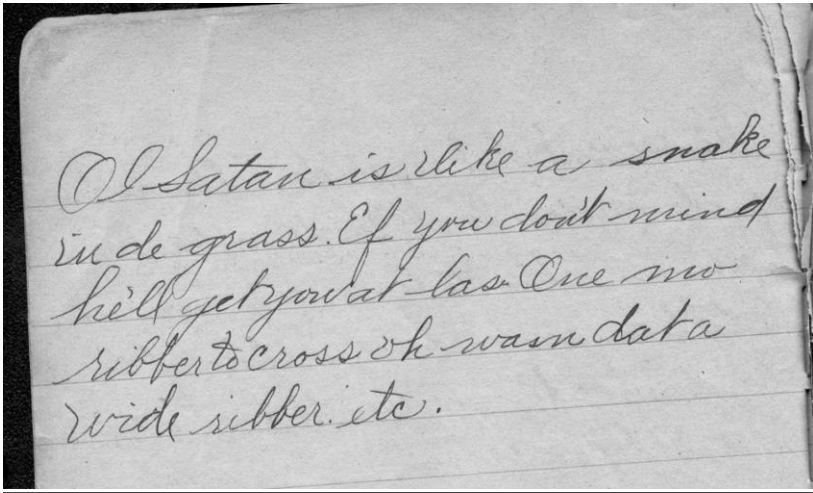 Ol Satan is like a snake
in de grass. Ef you don't mind
he'll get you at las One mo
ribber to cross oh wasn dat a
wide ribber. etc.